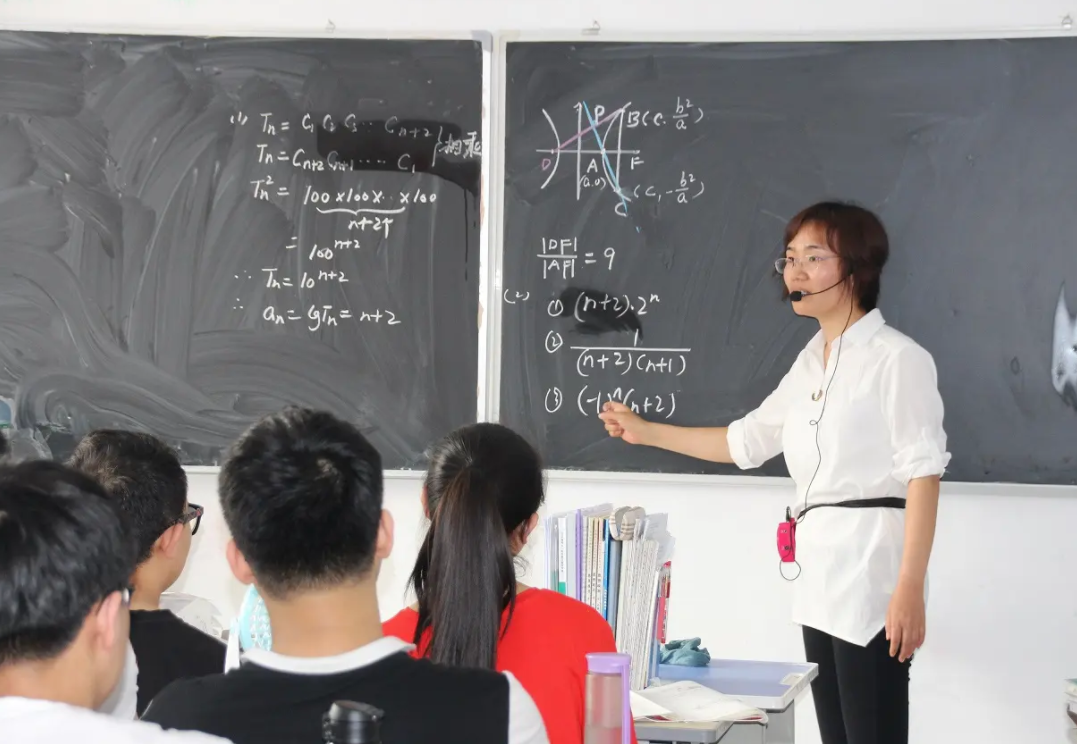 (1) Tn = C₁ C₂ C₃ ⋯ Cn+2 相乘
Tn = Cn+2 Cn+1 ⋯ C₁
Tn² = 100×100×⋯×100
n+2个
= 100ⁿ⁺²
∴ Tn = 10ⁿ⁺²
∴ an = lgTn = n+2
P B(c, b²/a)
D A F
(a,0) (c, -b²/a)
C
|DF|/|AF| = 9
(2) ① (n+2)·2ⁿ
② 1/((n+2)(n+1))
③ (-1)ⁿ(n+2)